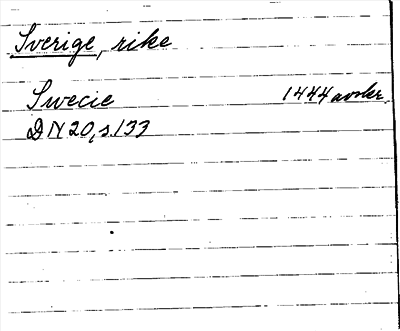 Sverige, rike
Swecie 1444 avskr.
DN 20, s. 133